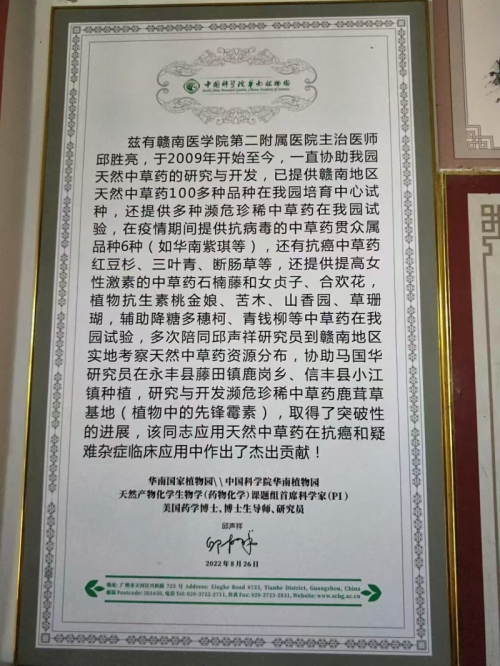 中国科学院华南植物园
South China Botanical Garden, Chinese Academy of Sciences
兹有赣南医学院第二附属医院主治医师
邱胜亮，于2009年开始至今，一直协助我园
天然中草药的研究与开发，已提供赣南地区
天然中草药100多种品种在我园培育中心试
种，还提供多种濒危珍稀中草药在我园试
验，在疫情期间提供抗病毒的中草药贯众属
品种6种（如华南紫萁等），还有抗癌中草药
红豆杉、三叶青、断肠草等，还提供提高女
性激素的中草药石楠藤和女贞子、合欢花，
植物抗生素桃金娘、苦木、山香园、草珊
瑚，辅助降糖多穗柯、青钱柳等中草药在我
园试验，多次陪同邱声祥研究员到赣南地区
实地考察天然中草药资源分布，协助马国华
研究员在永丰县藤田镇鹿岗乡、信丰县小江
镇种植，研究与开发濒危珍稀中草药鹿茸草
基地（植物中的先锋霉素），取得了突破性
的进展，该同志应用天然中草药在抗癌和疑
难杂症临床应用中作出了杰出贡献！
华南国家植物园\\中国科学院华南植物园
天然产物化学生物学（药物化学）课题组首席科学家（PI）
美国药学博士、博士生导师、研究员
邱声祥
邱声祥
2022年8月26日
地址: 广州市天河区兴科路 723 号 Address: Xingke Road #723, Tianhe District, Guangzhou, China
邮编 Postcode: 510650, 电话 Tel: 020-3725-2711, 传真 Fax: 020-3725-2831, Website: www.scbg.ac.cn